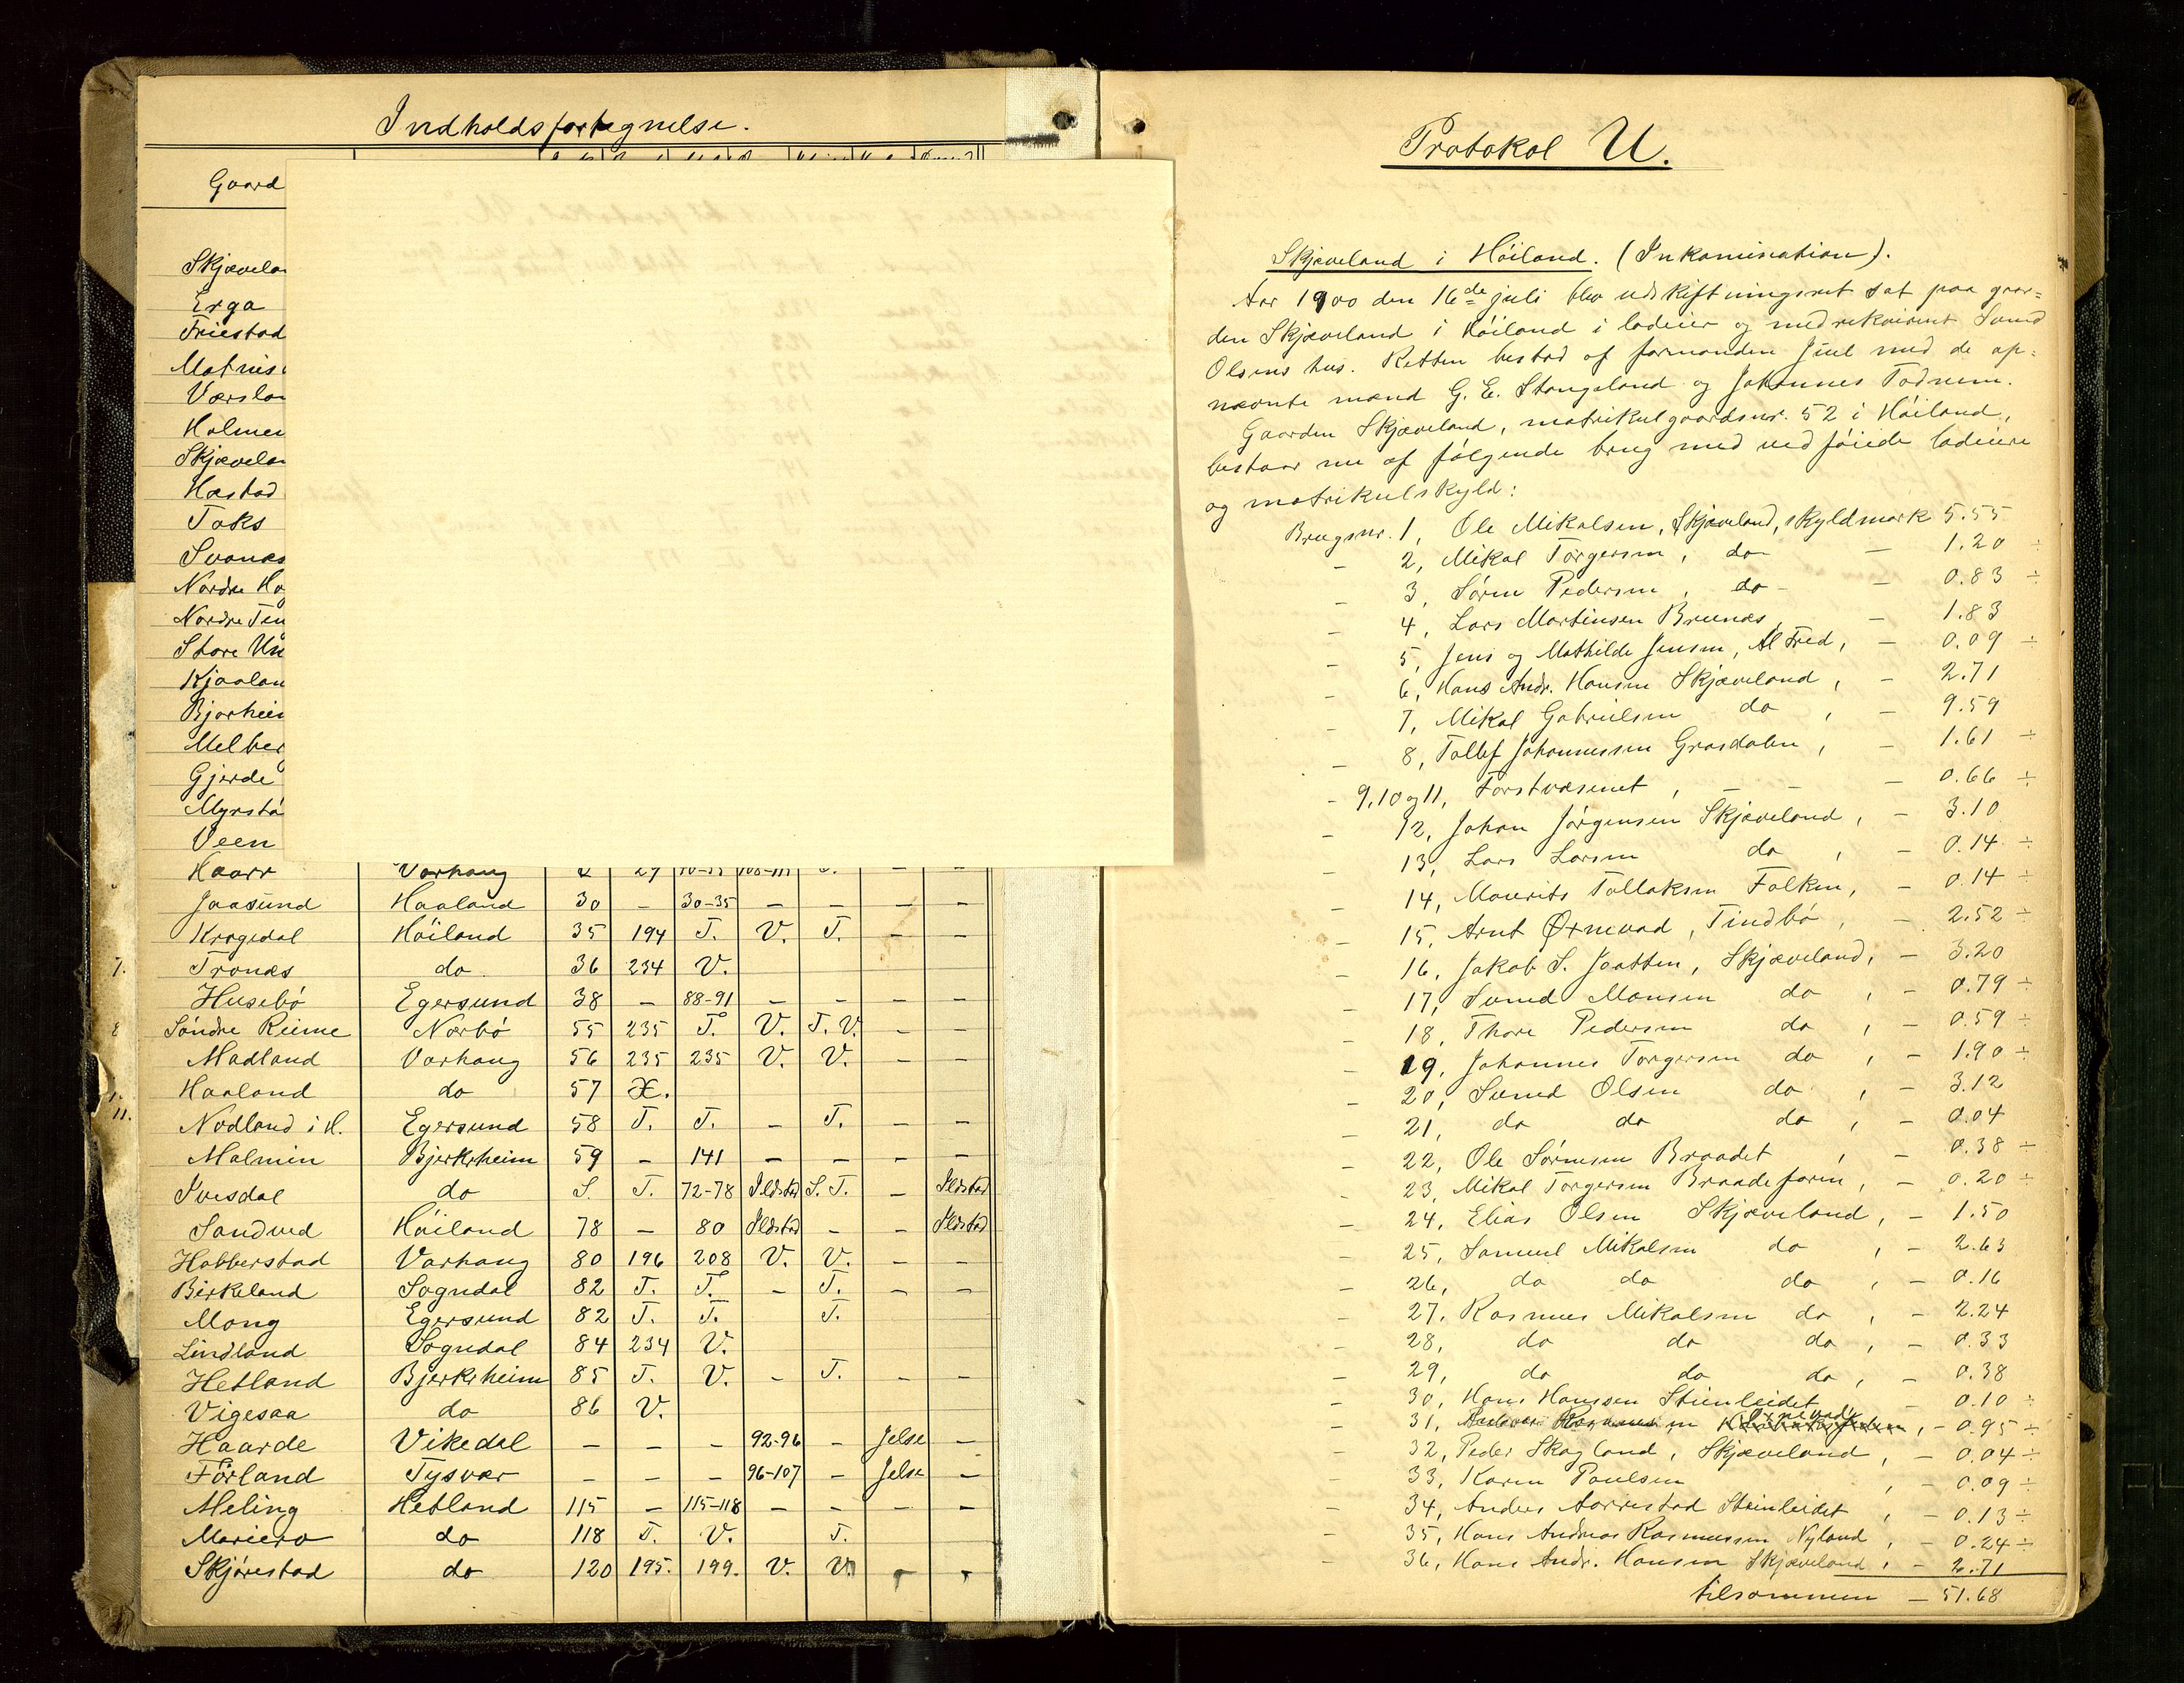 Indholdsfortegnelse.
Gaard
Skjævela
Erga
Friestad
Matnis
Værsla
Holme
Skjævela
Hæstad
Taks
Svanes
Nordre Ho
Nordre Ten
Store Un
Kjaalan
Bjorhei
Melber
Gjerde
Myrstö
Veen
Haarr Varhaug 29 108-111 T. – –
Jaasund Haaland 30 – 30-35 – – – –
Kragedal Höiland 35 194 T. V. T. – –
7. Tronæs do 36 234 V.
Husebö Egersund 38 – 88-91 – – – –
8 Söndre Reime Nærbö 55 235 T. V. T. V. – –
Madland Varhaug 56 235 235 V. V. – –
Haaland do 57 Æ.
11. Nodland i H. Egersund 58 T. T. – T. – –
Malmin Bjerkrheim 59 – 141 – – – –
Ivesdal do S. T. 72-78 Ildstad S. T. – Ildstad
Sandved Höiland 78 – 80 Ildstad – – Ildstad
Habberstad Varhaug 80 196 208 V. V. – –
Birkeland Sogndal 82 T. T. – T. – –
Mong Egersund 82 T. T. T.
Lindland Sogndal 84 234 V.
Hetland Bjerkrheim 85 T. V. – T. – –
Vigesaa do 86 V.
Haarde Vikedal – – – 92-96 – Jelse –
Förland Tysvær – – – 96-107 – Jelse –
Meling Hetland 115 – 115-118 – – – –
Mariero do 118 T. V. T.
Skjörestad do 120 195. 199. V. V. – –
Protokol U.
Skjæveland i Höiland. (Inkamination).
Aar 1900 den 16de juli blev udskiftningsret sat paa gaar=
den Skjæveland i Höiland i lodeier og medrekvirent Svend
Olsens hus. Retten bestod af formanden Juul med de op=
nævnte mænd G. E. Stangeland og Johannes Todnem.
Gaarden Skjæveland, matrikulgaardsnr. 52 i Höiland,
bestaar nu af fölgende brug med vedföiede lodeiere
og matrikulskyld:
Brugsnr. 1, Ole Mikalsen, Skjæveland, skyldmark 5.55
– 2, Mikal Torgersen, do – 1.20 ÷
– 3, Sören Pedersen, do – 0.83 ÷
– 4, Lars Martinsen Bruenæs, – 1.83
– 5, Jens og Mathilde Jensen, Al Fred, – 0.09 ÷
– 6, Hans Andr. Hansen Skjæveland, – 2.71
– 7, Mikal Gabrielsen do, – 9.59
– 8, Tollef Johannessen Grasdalen, – 1.61 ÷
– 9, 10 og 11, Forstvæsenet, – – – 0.66 ÷
– 12, Johan Jörgensen Skjæveland, – 3.10
– 13, Lars Larsen do, – 0.14 ÷
– 14, Maurits Tollaksen Falken, – 0.14 ÷
– 15, Arnt Ørnevad, Tindbö, – 2.52 ÷
– 16, Jakob S. Jaatten, Skjæveland, – 3.20
– 17, Svend Monsen do, – 0.79 ÷
– 18, Thore Pedersen do, – 0.59 ÷
– 19, Johannes Torgersen do, – 1.90 ÷
– 20, Svend Olsen do, – 3.12
– 21, do do do, – 0.04
– 22, Ole Sörensen Braadet, – 0.38 ÷
– 23, Mikal Torgersen Braadeforen, – 0.20 ÷
– 24, Elias Olsen Skjæveland, – 1.50
– 25, Samuel Mikalsen do, – 2.63
– 26, do do do, – 0.16
– 27, Rasmus Mikalsen do, – 2.24
– 28, do do do, – 0.33
– 29, do do do, – 0.38
– 30, Hans Hanssen Stenleidet – 0.10 ÷
– 31, – 0.95 ÷
– 32, Peder Skagland, Skjæveland, – 0.04 ÷
– 33, Karen Paulsen, – 0.09 ÷
– 34, Anders Aarrestad Stenleidet, – 0.13 ÷
– 35, Hans Andreas Rasmussen Nyland, – 0.24 ÷
– 36, Hans Andr. Hansen Skjæveland, – 2.71
tilsammen – 51.68